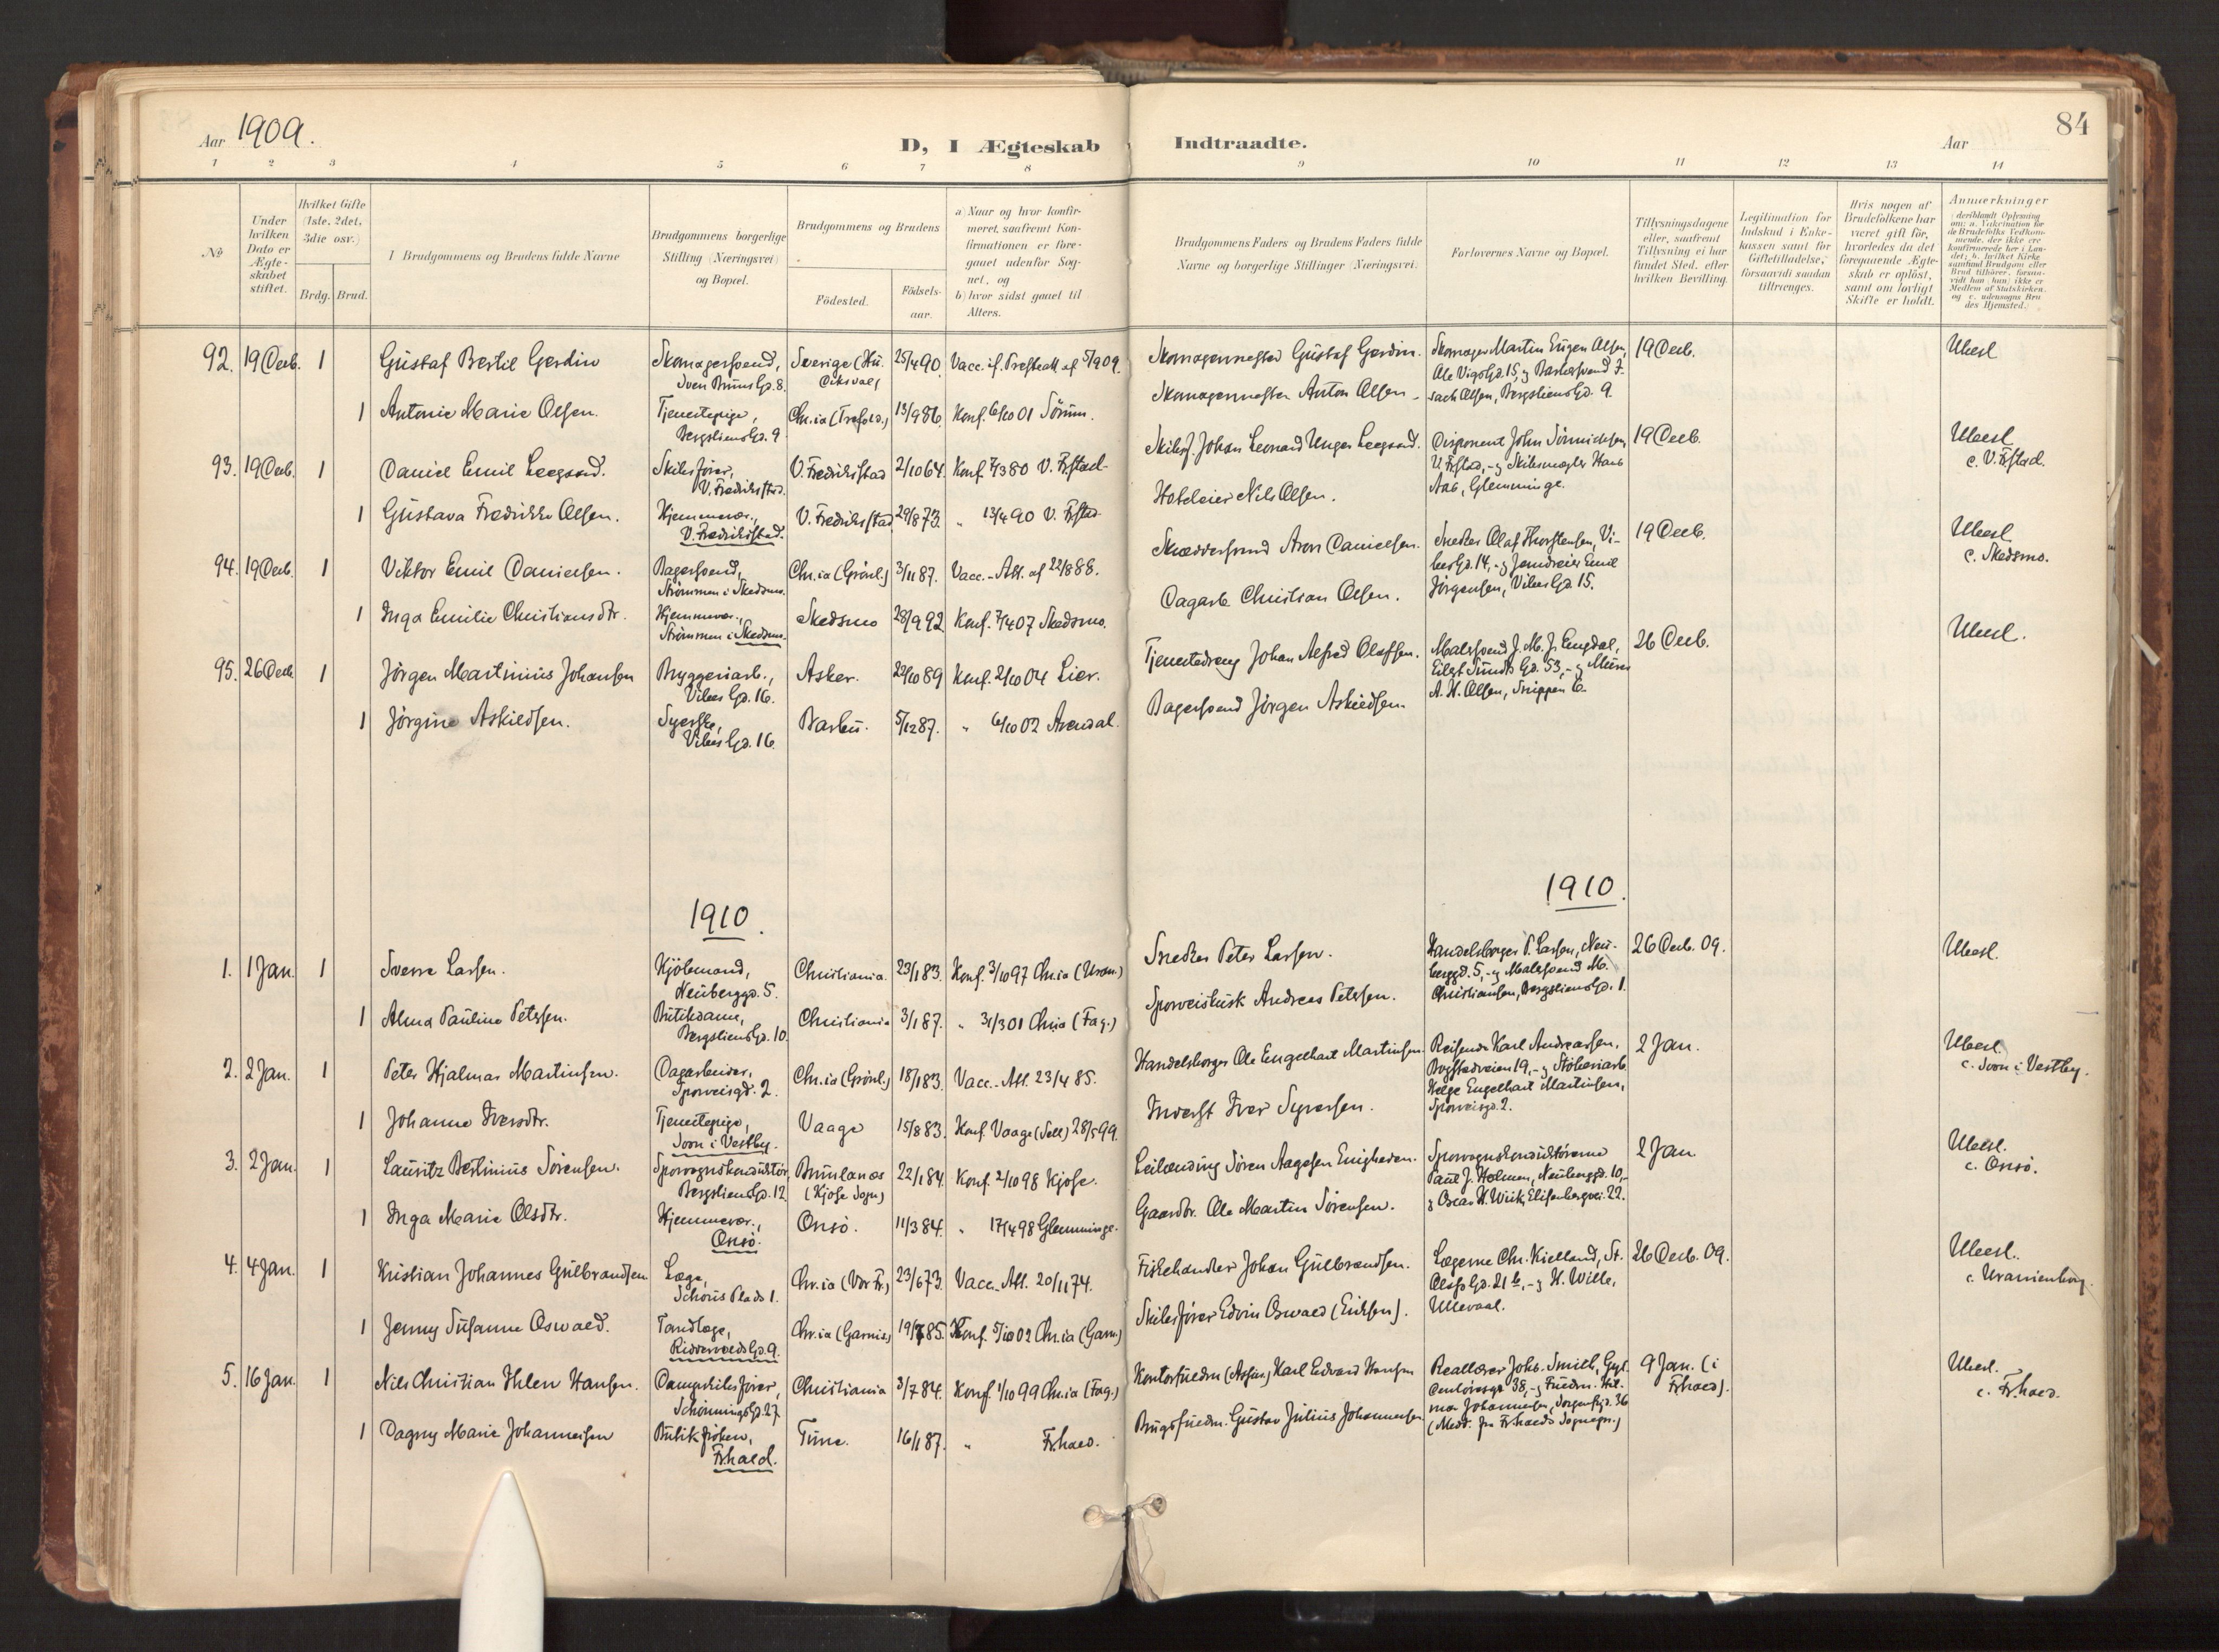 84
Aar 1909.
D, I Ægteskab Indtraadte.
Aar
1 2 3 4 5 6 7 8 9 10 11 12 13 14
№
Under hvilken Dato er Ægteskabet stiftet.
Hvilket Gifte (1ste, 2det, 3die osv.)
Brdg. Brud.
Brudgommens og Brudens fulde Navne
Brudgommens borgerlige Stilling (Næringsvei) og Bopæl.
Brudgommens og Brudens
Födested.
Födselsaar.
a) Naar og hvor konfirmeret, saafremt Konfirmationen er foregaaet udenfor Sognet, og
b) hvor sidst gaaet til Alters.
Brudgommens Faders og Brudens Faders fulde Navne og borgerlige Stillinger (Næringsvei).
Forlovernes Navne og Bopæl.
Tillysningsdagene eller, saafremt Tillysning ei har fundet Sted, efter hvilken Bevilling.
Legitimation for Indskud i Enkekassen samt for Giftetilladelse, forsaavidt saadan tiltrænges.
Hvis nogen af Brudefolkene har været gift för, hvorledes da det foregaaende Ægteskab er oplöst, samt om lovligt Skifte er holdt.
Anmærkninger
92. 19 Decb. 1 Gustaf Bertil Gerdin Skomagersvend, Sven Bruns Gd. 8. Sverige 25/4 90. Vacc. 5/9 09. Skomagermester Gustaf Gerdin. Skomager Martin Eugen Olsen, Ole Vigs Gd. 15, 19 Decb. Ubesl
1 Antonie Marie Olsen. Tjenestepige, Bergsliens Gd. 9 Chr.ia (Trefold.) 13/9 86. Konf. 6/10 01 Sörum. Skomagermester Anton Olsen Olsen, Bergsliens Gd. 9.
93. 19 Decb. 1 Daniel Emil Leegaard. Skibsförer, V. Fredrikstad. V. Fredrikstad 2/10 64. Konf. 7/3 80 V. Fr.stad. Skibsf. Johan Leonard Unger Leegaard. Disponent John V. Fr.stad, og Skibsmægler Hans Aas, Glemminge. 19 Decb. Ubesl c. V. Fr.stad.
1 Gustava Fredrikke Olsen. Hjemmevær., V. Fredrikstad. V. Fredrikstad 29/8 73. " 13/4 90 V. Fr.stad. Hoteleier Nils Olsen.
94. 19 Decb. 1 Viktor Emil Danielsen. Bagersvend, Strömmen i Skedsmo. Chr.ia (Grönl.) 3/11 87. Vacc.-Att. af 22/8 88. Skræddersvend Aron Danielsen. Snedker Olaf Thorstensen, Vibes Gd. 14, og Emil Jörgensen, Vibes Gd. 15. 19 Decb. Ubesl c. Skedsmo.
1 Inga Emilie Christiansdtr. Hjemmevær., Strömmen i Skedsmo. Skedsmo 28/9 92 Konf. 7/4 07 Skedsmo. Dagarb. Christian Olsen.
95. 26 Decb. 1 Jörgen Martinius Johansen Bryggeriarb., Vibes Gd. 16. Asker. 29/10 89 Konf. 2/10 04 Lier. Tjenestedreng Johan Alfred Olafsen. Malersvend J. M. J. Engdal, Eilert Sundts Gd. 53, og Murer A. H. Olsen, Snippen 6. 26 Decb. Ubesl.
1 Jörgine Askildsen. Syerske, Vibes Gd. 16. Barbu. 5/12 87. " 6/10 02 Arendal. Bagersvend Jörgen Askildsen
1910. 1910.
1. 1 Jan. 1 Sverre Larsen. Kjölemand, Neuberggd. 5. Christiania. 23/1 83. Konf. 3/10 97 Chr.ia (Uran.) Snedker Peter Larsen. Handelsborger P. Larsen, Neuberggd. 5, og Malersvend M. Christiansen, Bergsliens Gd. 1. 26 Decb. 09. Ubesl.
1 Alma Pauline Petersen. Butikdame, Bergsliens Gd. 10. Christiania 3/1 87. " 31/3 01 Chr.ia (Fag.) Sporveiskusk Andreas Petersen.
2. 2 Jan. 1 Peter Hjalmar Martinsen. Dagarbeider, Sporveisgd. 2. Chr.ia (Grönl.) 18/1 83. Vacc.-Att. 23/4 85. Handelsborger Ole Engelhart Martinsen Reisende Karl Andreassen, Bogstadveien 19, og Stöberiarb. Helge Engelhart Martinsen, Sporveisgd. 2. 2 Jan. Ubesl. c. Soon i Vestby.
1 Johanne Iversdtr. Tjenestepige, Soon i Vestby. Vaage 15/8 83. Konf. Vaage (Sell) 28/5 99. Inderst Iver Syversen.
3. 2 Jan. 1 Lauritz Bertinius Sörensen. Sporvognskonduktör, Bergsliens Gd. 12. Brunlanes (Kjose Sogn) 22/1 84. Konf. 2/10 98 Kjose. Leilænding Sören Aagesen Enigheden. Sporvognskonduktörerne Paul J. Holmen, Neuberggd. 10, og Oscar H. Wiik, Elisenbergvei. 22. 2 Jan Ubesl. c. Onsö.
1 Inga Marie Olsdtr. Hjemmevær., Onsö. Onsö. 11/3 84. " 17/4 98 Glemminge. Gaardbr. Ole Martin Sörensen.
4. 4 Jan. 1 Kristian Johannes Gulbrandsen Læge, Schous Plads 1. Chr.ia (Vor Fr.) 23/6 73. Vacc.-Att. 20/11 74. Fiskehandler Johan Gulbrandsen. Lægerne Chr. Kielland, St. Olafs Gd. 21 b, og H. Wille, Ullevaal. 26 Decb. 09. Ubesl. c. Uranienborg.
1 Jenny Susanne Oswald. Tandlæge, Riddervolds Gd. 9. Chr.ia (Garnis.) 19/7 85. Konf. 5/10 02 Chr.ia (Garn.) Skibsförer Edvin Oswald (Eriksen).
5. 16 Jan. 1 Nils Christian Ihlen Hansen. Dampskibsförer, Schönnings Gd. 27. Christiania 3/7 84. Konf. 1/10 99 Chr.ia (Fag.) Kontorfuldm. Karl Edvard Hansen Reallærer Johs. Smith, Gyldenlövesgd. 38, og Fuldm. Hilmar Johannesen, Sorgenfrigd. 36 (Medd. fra Fr.halds Sognepr.) 9 Jan. (i Fr.hald). Ubesl. c. Fr.hald.
1 Dagny Marie Johannesen Butikfröken, Fr.hald. Tune. 16/1 87. " Fr.hald. Brugsfuldm. Gustav Julius Johannesen